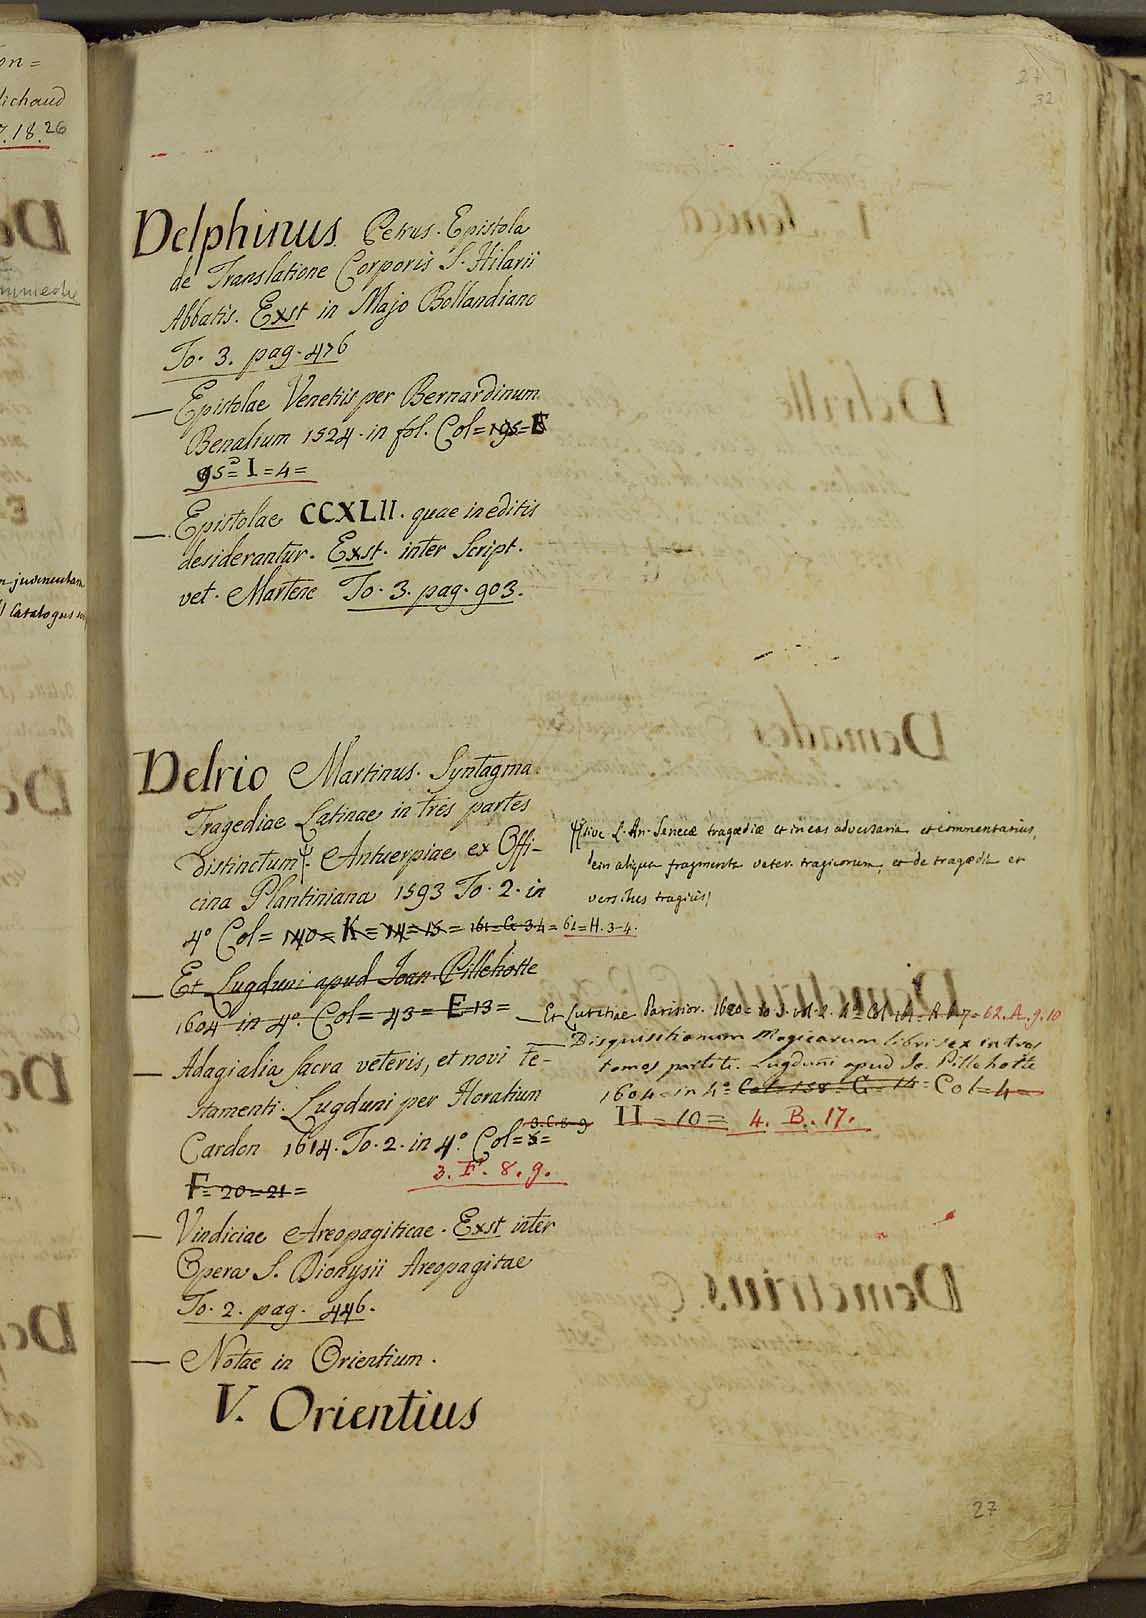 27
32
Delphinus Petrus. Epistola
de Translatione Corporis S. Hilarii
Abbatis. Exst in Majo Bollandiano
To. 3. pag. 476
— Epistolae Venetiis per Bernardinum
Benalium 1524. in fol. Col= 195= E
95= I = 4 =
— Epistolae CCXLII. quae in editis
desiderantur. Exst. inter Script.
vet. Martene To. 3. pag. 903.
Delrio Martinus. Syntagma
Tragediae Latinae in tres partes
distinctum Ψ. Antuerpiae ex Offi-
cina Plantiniana 1593 To. 2. in
4º Col= 140= K= 14= 15 = 161= C. 3.4 = 62= H. 3-4.
Ψ sive L. An. Senecæ tragœdiæ et in eas adversaria et commentarius,
aliqua fragmenta veter. tragicorum, et de tragœdia et
versibus tragicis
— Et Lugduni apud Joan. Pillehotte
1604 in 4º. Col= 43= E 13=
— Et Lutetiae Parisior. 1620= vol. 2. 4º 62. A. 9. 10
— Disquisitionum Magicarum libri sex in tres
tomos partiti. Lugduni apud Jo. Pillehotte
1604= in 4º Col= 158= C= 14= Col= 4=
II = 10 = 4. B. 17.
— Adagialia sacra veteris, et novi te-
stamenti. Lugduni per Horatium
Cardon 1614. To. 2. in 4º. Col= 5= 3. C. 8. 9
F= 20=21= 3. F. 8. 9.
— Vindiciae Areopagiticae. Exst inter
Opera S. Dionysii Areopagitae
To. 2. pag. 446.
— Notae in Orientium.
V. Orientius
27